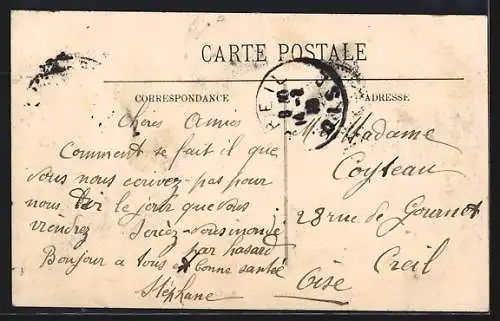 CARTE POSTALE
CORRESPONDANCE
ADRESSE
Chères Amies
Comment se fait il que
vous nous écrivez pas pour
nous le jour que vous
viendrez Seriez-vous
par hasard
Bonjour a tous bonne santée
Stéphane
Madame
Coyteau
28 rue de Gournet
Creil
Oise